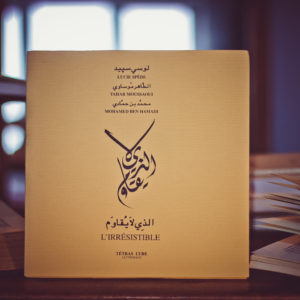 لوسي سپيد
LUCIE SPÈDE
الطاهر موساوي
TAHAR MOUSSAOUI
محمد بن حمادي
MOHAMED BEN HAMADI
الذي لا يقاوم
الذِي لاَ يُقاوَم
L'IRRÉSISTIBLE
TÉTRAS LYRE